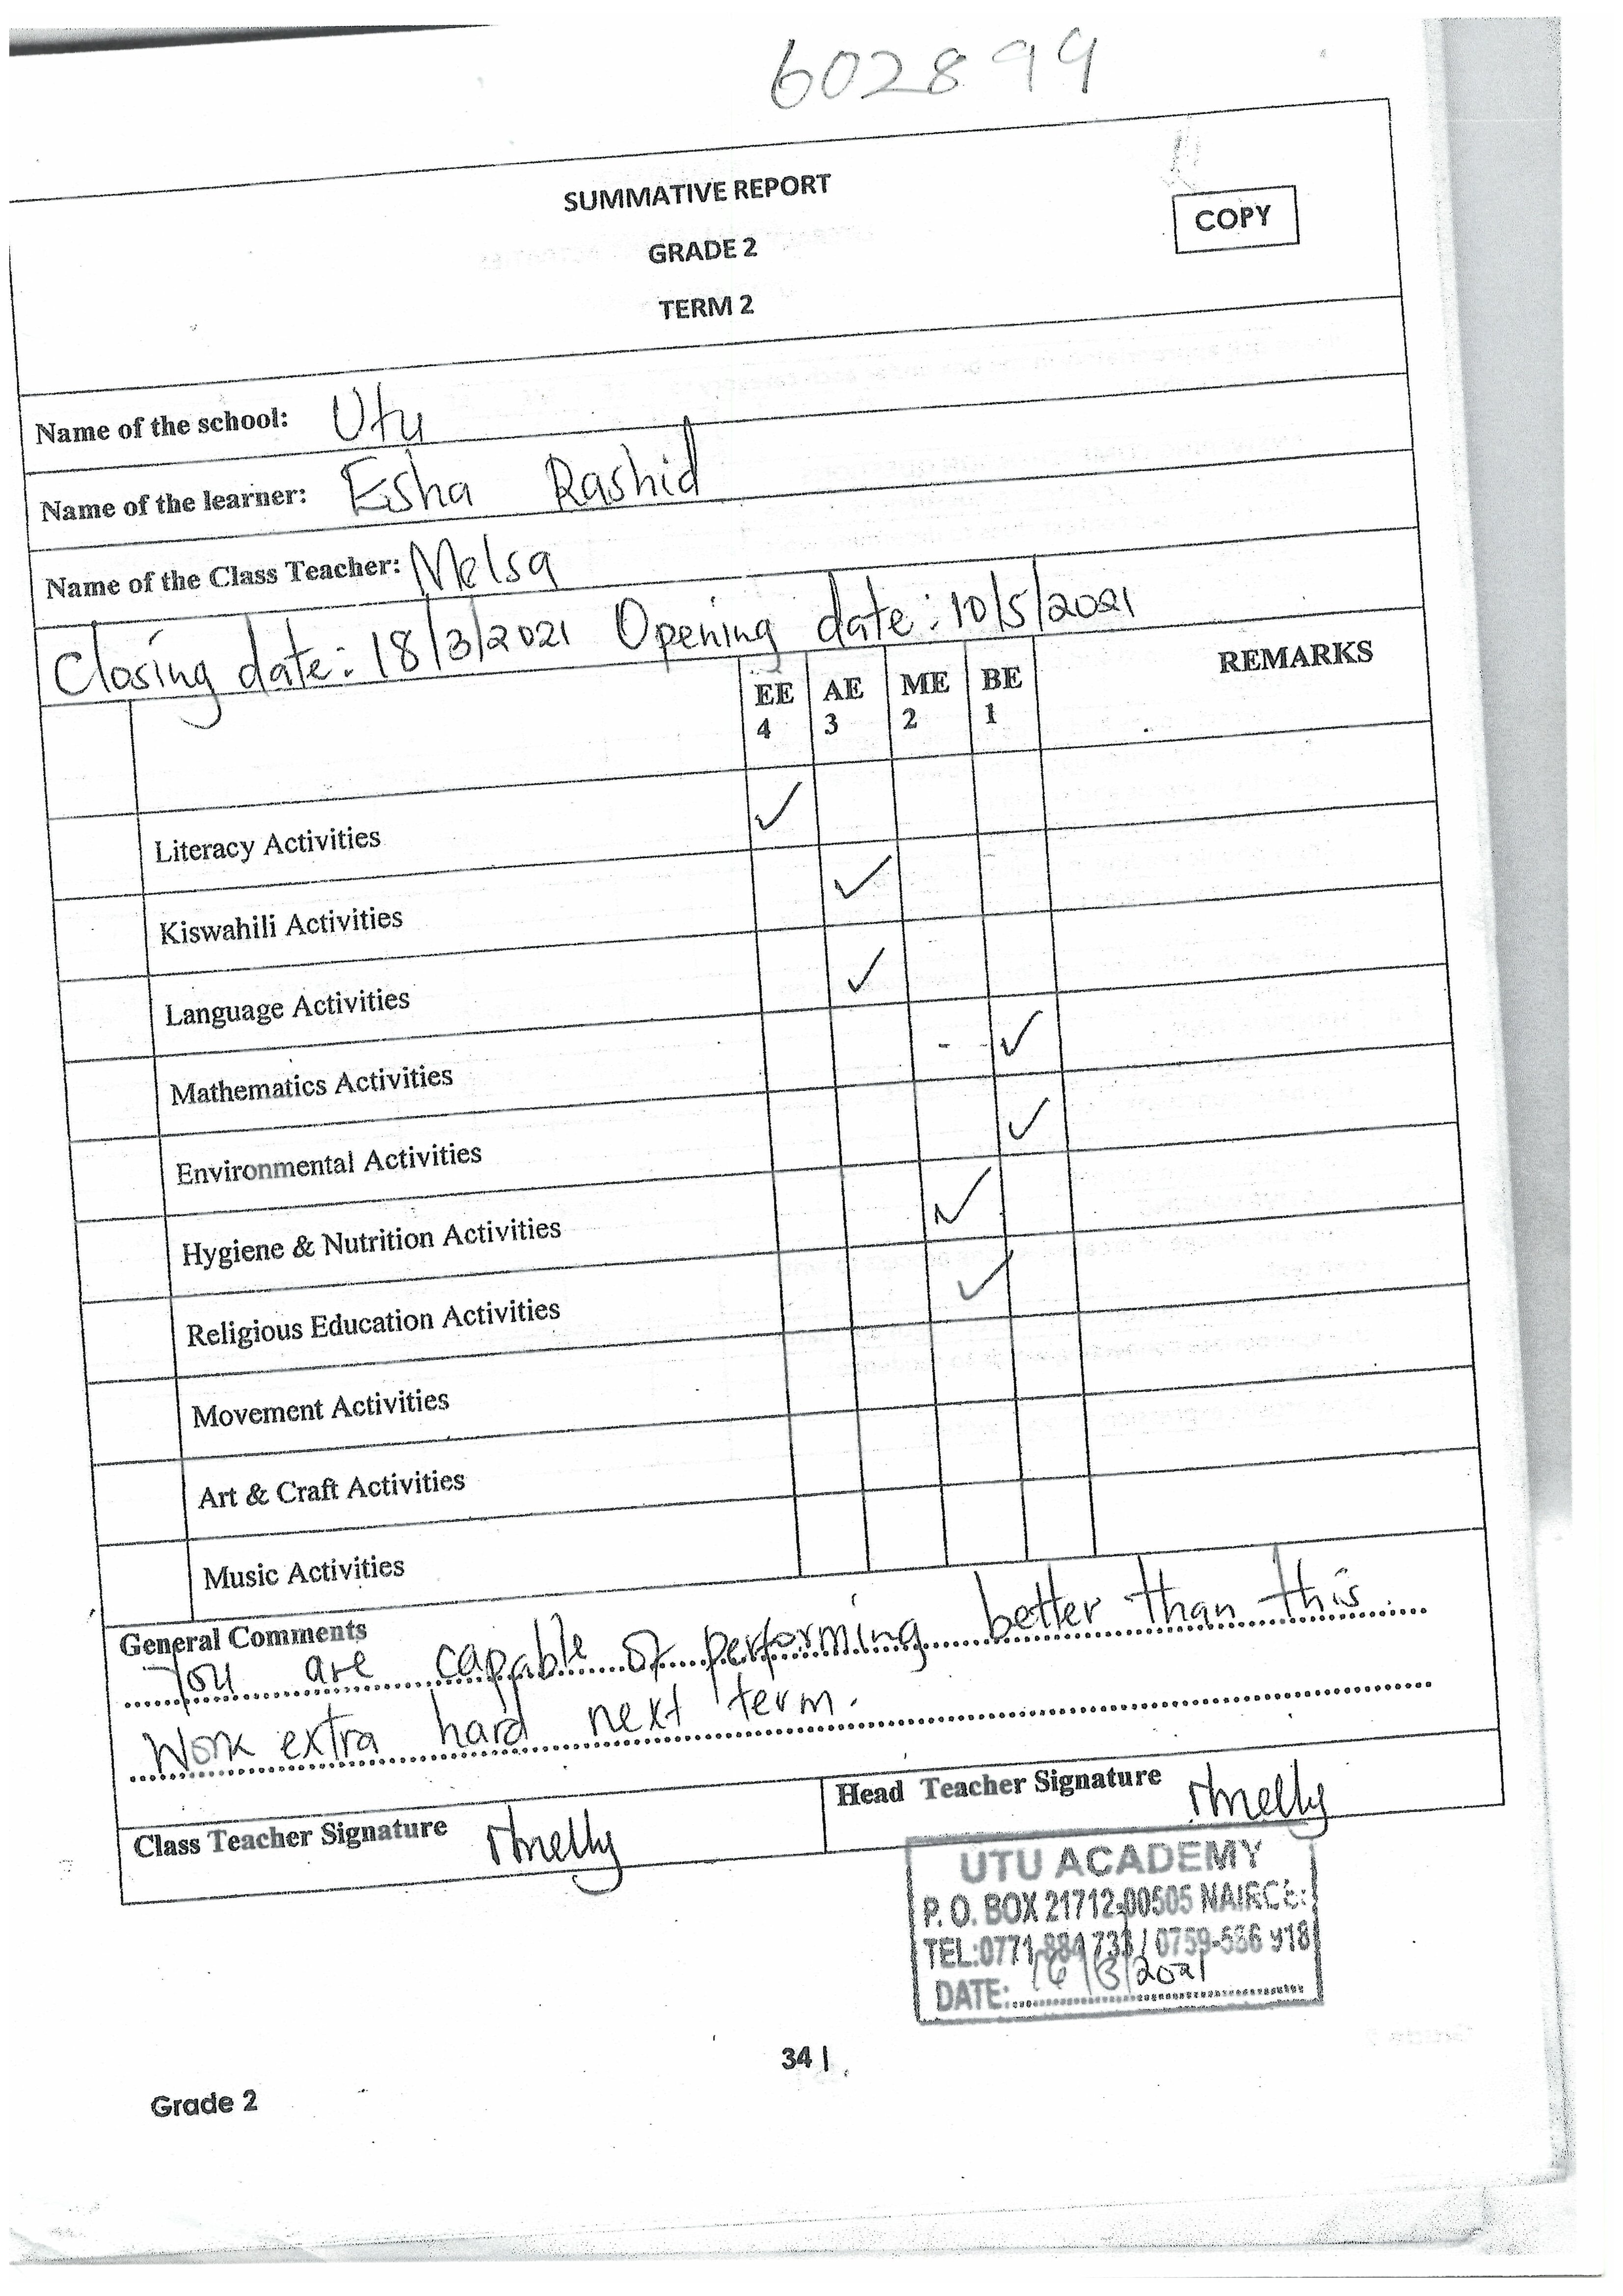 602899
SUMMATIVE REPORT
COPY
GRADE 2
TERM 2
Name of the school: Utu
Name of the learner: Esha Rashid
Name of the Class Teacher: Melsa
Closing date: 18/3/2021 Opening date: 10/5/2021
EE AE ME BE REMARKS
4 3 2 1
Literacy Activities ✓
Kiswahili Activities ✓
Language Activities ✓
Mathematics Activities - ✓
Environmental Activities ✓
Hygiene & Nutrition Activities ✓
Religious Education Activities ✓
Movement Activities
Art & Craft Activities
Music Activities
General Comments
You are capable of performing better than this
Work extra hard next term.
Class Teacher Signature
Head Teacher Signature
UTU ACADEMY
P. O. BOX 21712-00505
TEL:0771-884 733 / 0759-
DATE: 16/3/2021
34 |
Grade 2